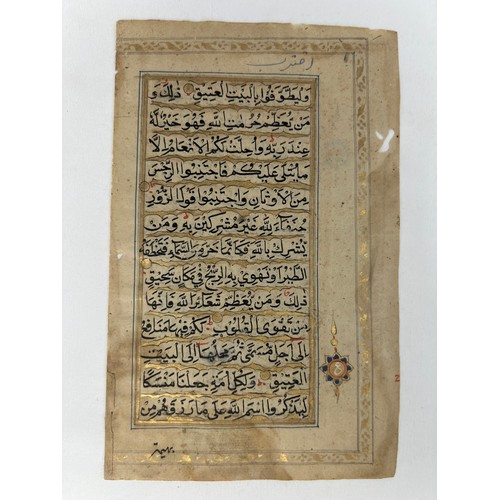 اقترب
وليطوفوا بالبيت العتيق ذلك و
من يعظم حرمت الله فهو خير له
عند ربه واحلت لكم الانعام الا
ما يتلى عليكم فاجتنبوا الرجس
من الاوثان واجتنبوا قول الزور
حنفاء لله غير مشركين به ومن
يشرك بالله فكانما خر من السماء فتخطفه
الطير او تهوي به الريح في مكان سحيق
ذلك ومن يعظم شعائر الله فانها
من تقوى القلوب لكم فيها منافع
الى اجل مسمى ثم محلها الى البيت
العتيق ولكل امة جعلنا منسكا
ليذكروا اسم الله على ما رزقهم من
بهيمة